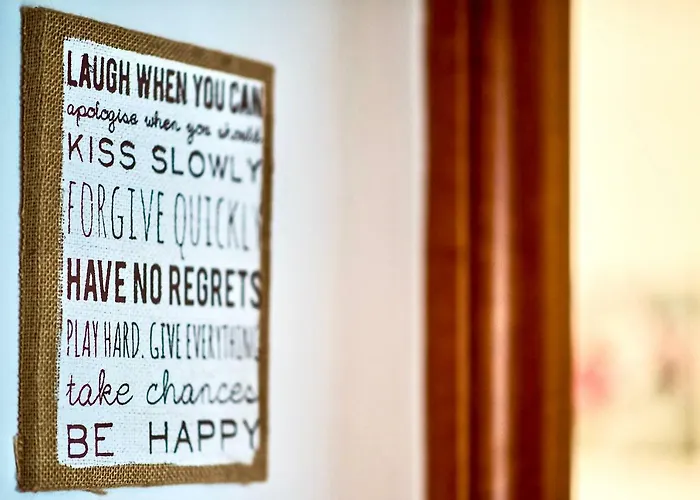 LAUGH WHEN YOU CAN
apologise when you should
KISS SLOWLY
FORGIVE QUICKLY
HAVE NO REGRETS
PLAY HARD. GIVE EVERYTHING
take chances
BE HAPPY